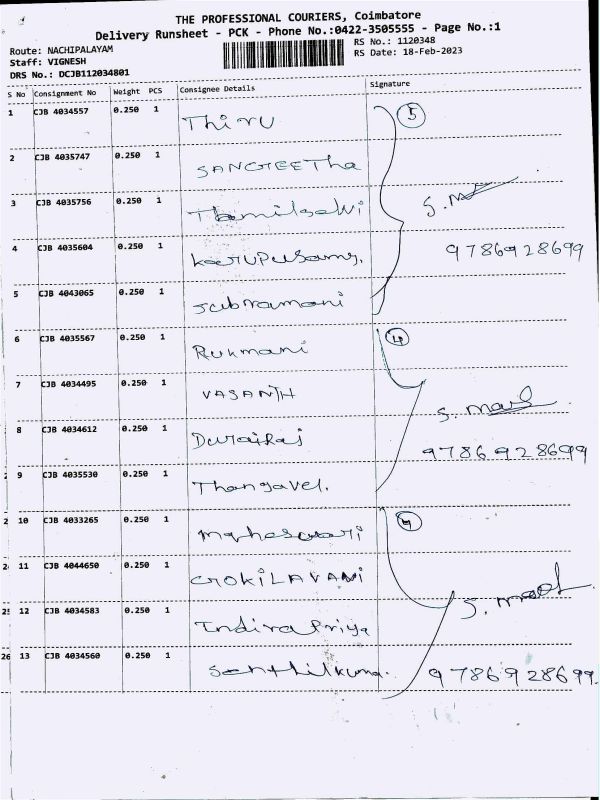 THE PROFESSIONAL COURIERS, Coimbatore
Delivery Runsheet - PCK - Phone No.:0422-3505555 - Page No.:1
Route: NACHIPALAYAM
RS No.: 1120348
Staff: VIGNESH
RS Date: 18-Feb-2023
DRS No.: DCJB112034801
S No Consignment No Weight PCS Consignee Details Signature
1 CJB 4034557 0.250 1 Thiru 5
2 CJB 4035747 0.250 1 SANGEETha
3 CJB 4035756 0.250 1 Thamilselvi
4 CJB 4035604 0.250 1 karupusamy. 9786928699
5 CJB 4043065 0.250 1 subramani
6 CJB 4035567 0.250 1 Rukmani 4
7 CJB 4034495 0.250 1 VASANTH
8 CJB 4034612 0.250 1 Durairaj 9786928699
9 CJB 4035530 0.250 1 Thangavel.
10 CJB 4033265 0.250 1 maheswari 4
11 CJB 4044650 0.250 1 GOKILAVANI
12 CJB 4034583 0.250 1 Indirapriya
26 13 CJB 4034560 0.250 1 Senthilkuma. 9786928699.